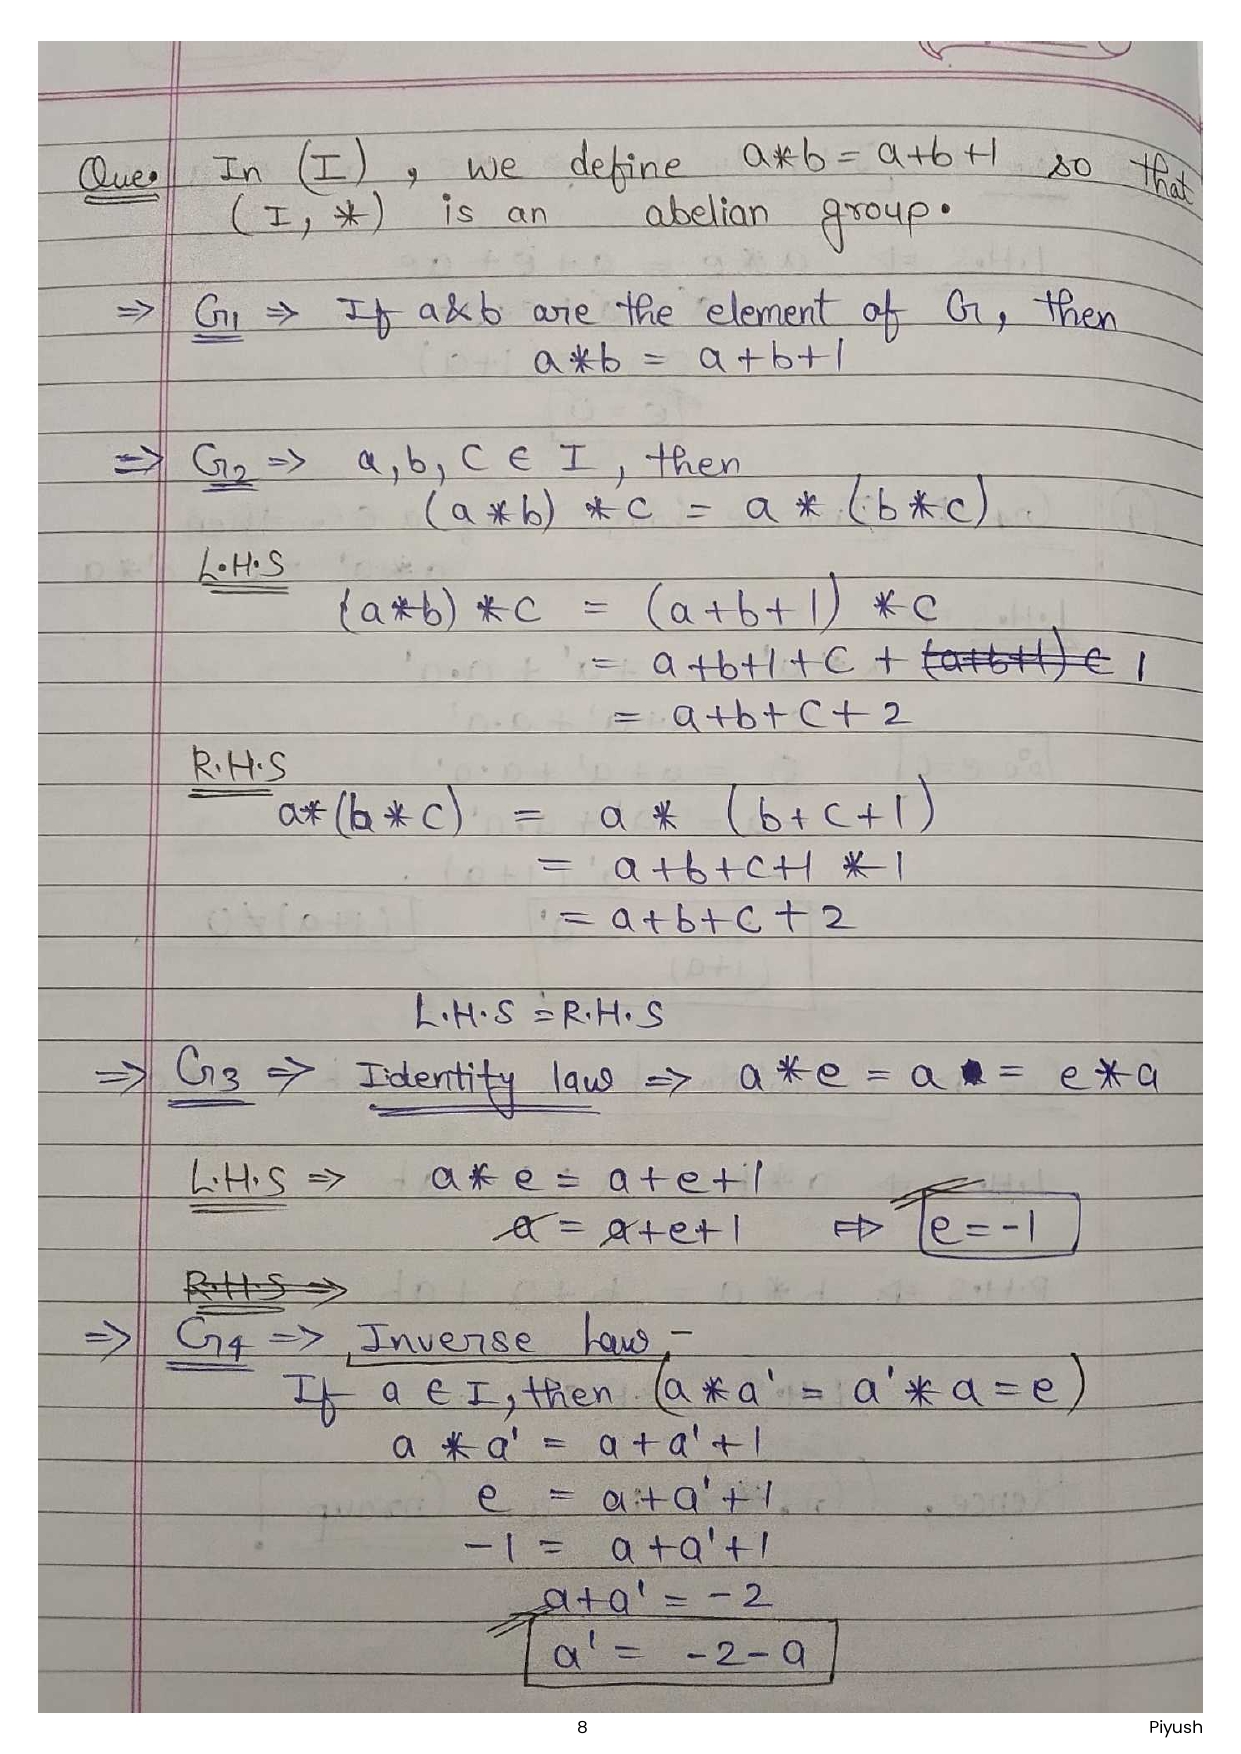 Que. In (I), we define a*b = a+b+1 so that
(I, *) is an abelian group.
⇒ G1 ⇒ If a&b are the element of G, then
a*b = a+b+1
⇒ G2 ⇒ a, b, c ∈ I, then
(a*b) *c = a * (b*c)
L.H.S
(a*b) *c = (a+b+1) *c
= a+b+1+c + (a+b+1) c 1
= a+b+c+2
R.H.S
a*(b*c) = a * (b+c+1)
= a+b+c+1 *1
= a+b+c+2
L.H.S = R.H.S
⇒ G3 ⇒ Identity law ⇒ a*e = a = e*a
L.H.S ⇒ a*e = a+e+1
a = a+e+1 ⇒ e = -1
R.H.S ⇒
⇒ G4 ⇒ Inverse Law -
If a ∈ I, then (a*a' = a'*a = e)
a*a' = a+a'+1
e = a+a'+1
-1 = a+a'+1
a+a' = -2
a' = -2-a
8 Piyush